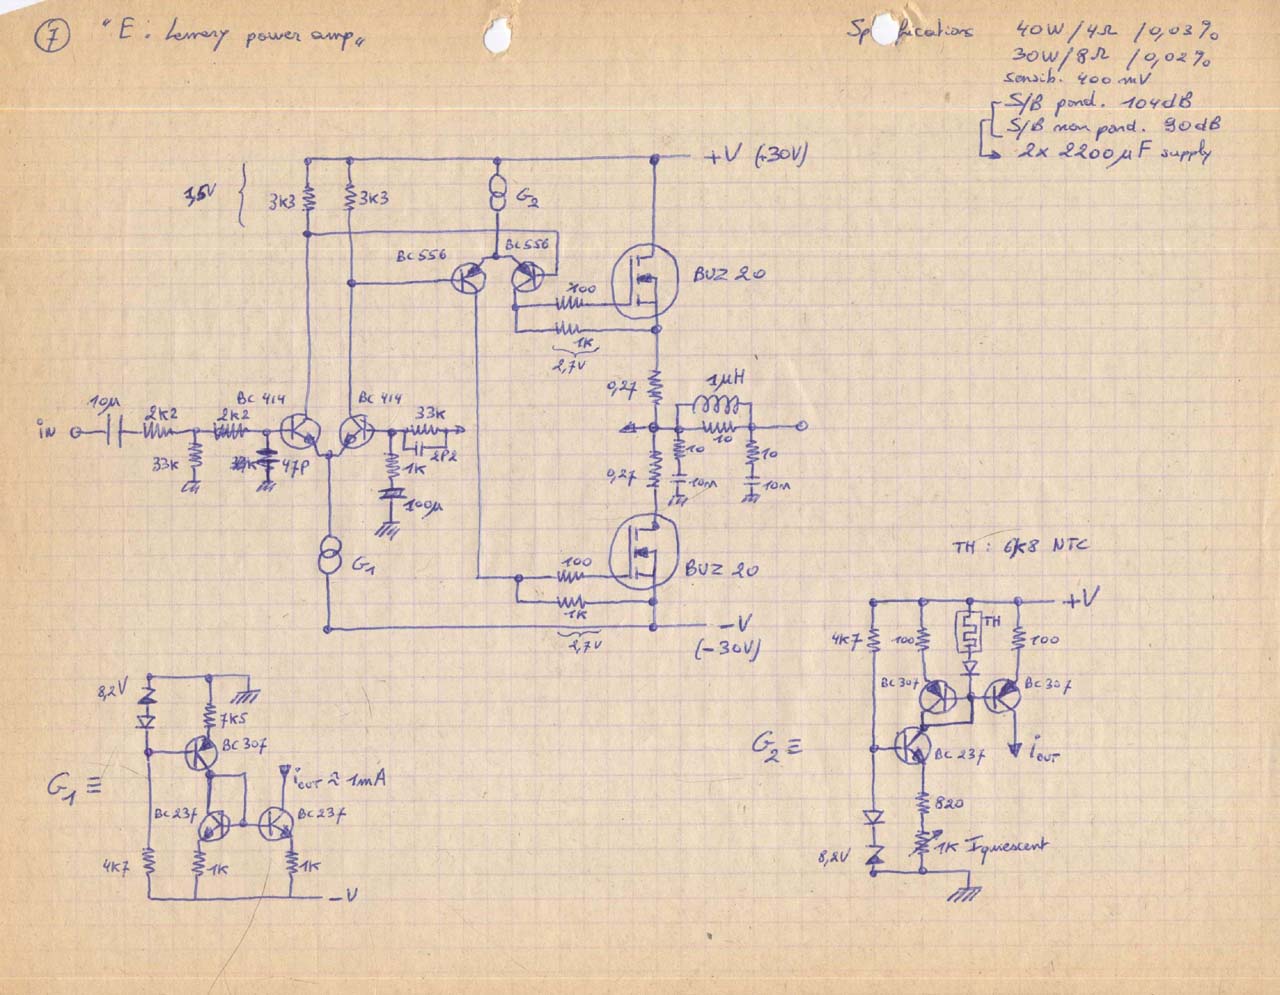 7 "E. Lemery power amp"
Specifications 40W/4Ω /0,03%
30W/8Ω /0,02%
sensib. 400 mV
S/B pond. 104dB
S/B non pond. 90dB
2x 2200µF supply
+V (+30V)
1,5V
3K3
3K3
G2
BC556
BC556
BUZ 20
100
1K
2,7V
0,27
1µH
10
iN
10µ
2K2
2K2
BC 414
BC 414
33K
2P2
33K
47P
1K
100µ
10
10n
10
10n
0,27
G1
BUZ 20
100
1K
2,7V
-V
(-30V)
TH : 6K8 NTC
+V
4K7
100
TH
100
BC307
BC307
G2 ≡
BC237
iout
820
1K Iquiescent
8,2V
8,2V
7K5
BC307
G1 ≡
iout ≈ 1mA
BC237
BC237
4K7
1K
1K
-V